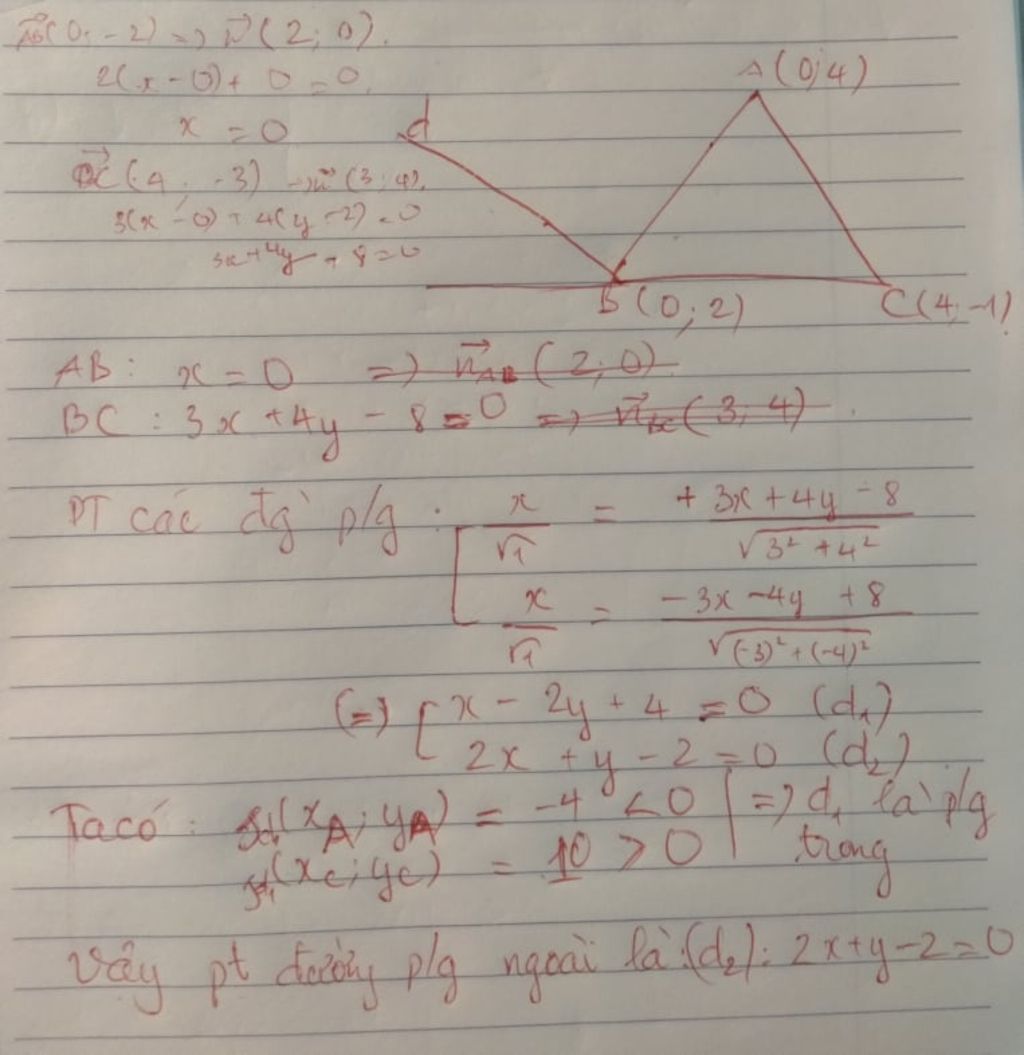 AB(0; -2) => n(2; 0).
2(x - 0) + 0 = 0
x = 0
BC(4; -3) → n(3; 4).
3(x - 0) + 4(y - 2) = 0
3x + 4y + 8 = 0
d
A(0;4)
B(0; 2)
C(4; -1)
AB: x = 0 => n_AB (2; 0)
BC: 3x + 4y - 8 = 0 => n_BC (3; 4)
PT các đg p/g: x/√1 = + 3x + 4y - 8 / √3² + 4²
x/√1 = -3x - 4y + 8 / √(-3)² + (-4)²
(=) [ x - 2y + 4 = 0 (d₁)
2x + y - 2 = 0 (d₂)
Ta có: (x_A; y_A) = -4 < 0 | => d₁ là p/g
(x_C; y_C) = 10 > 0 | trong
Vậy pt đường p/g ngoài là: (d₂): 2x + y - 2 = 0